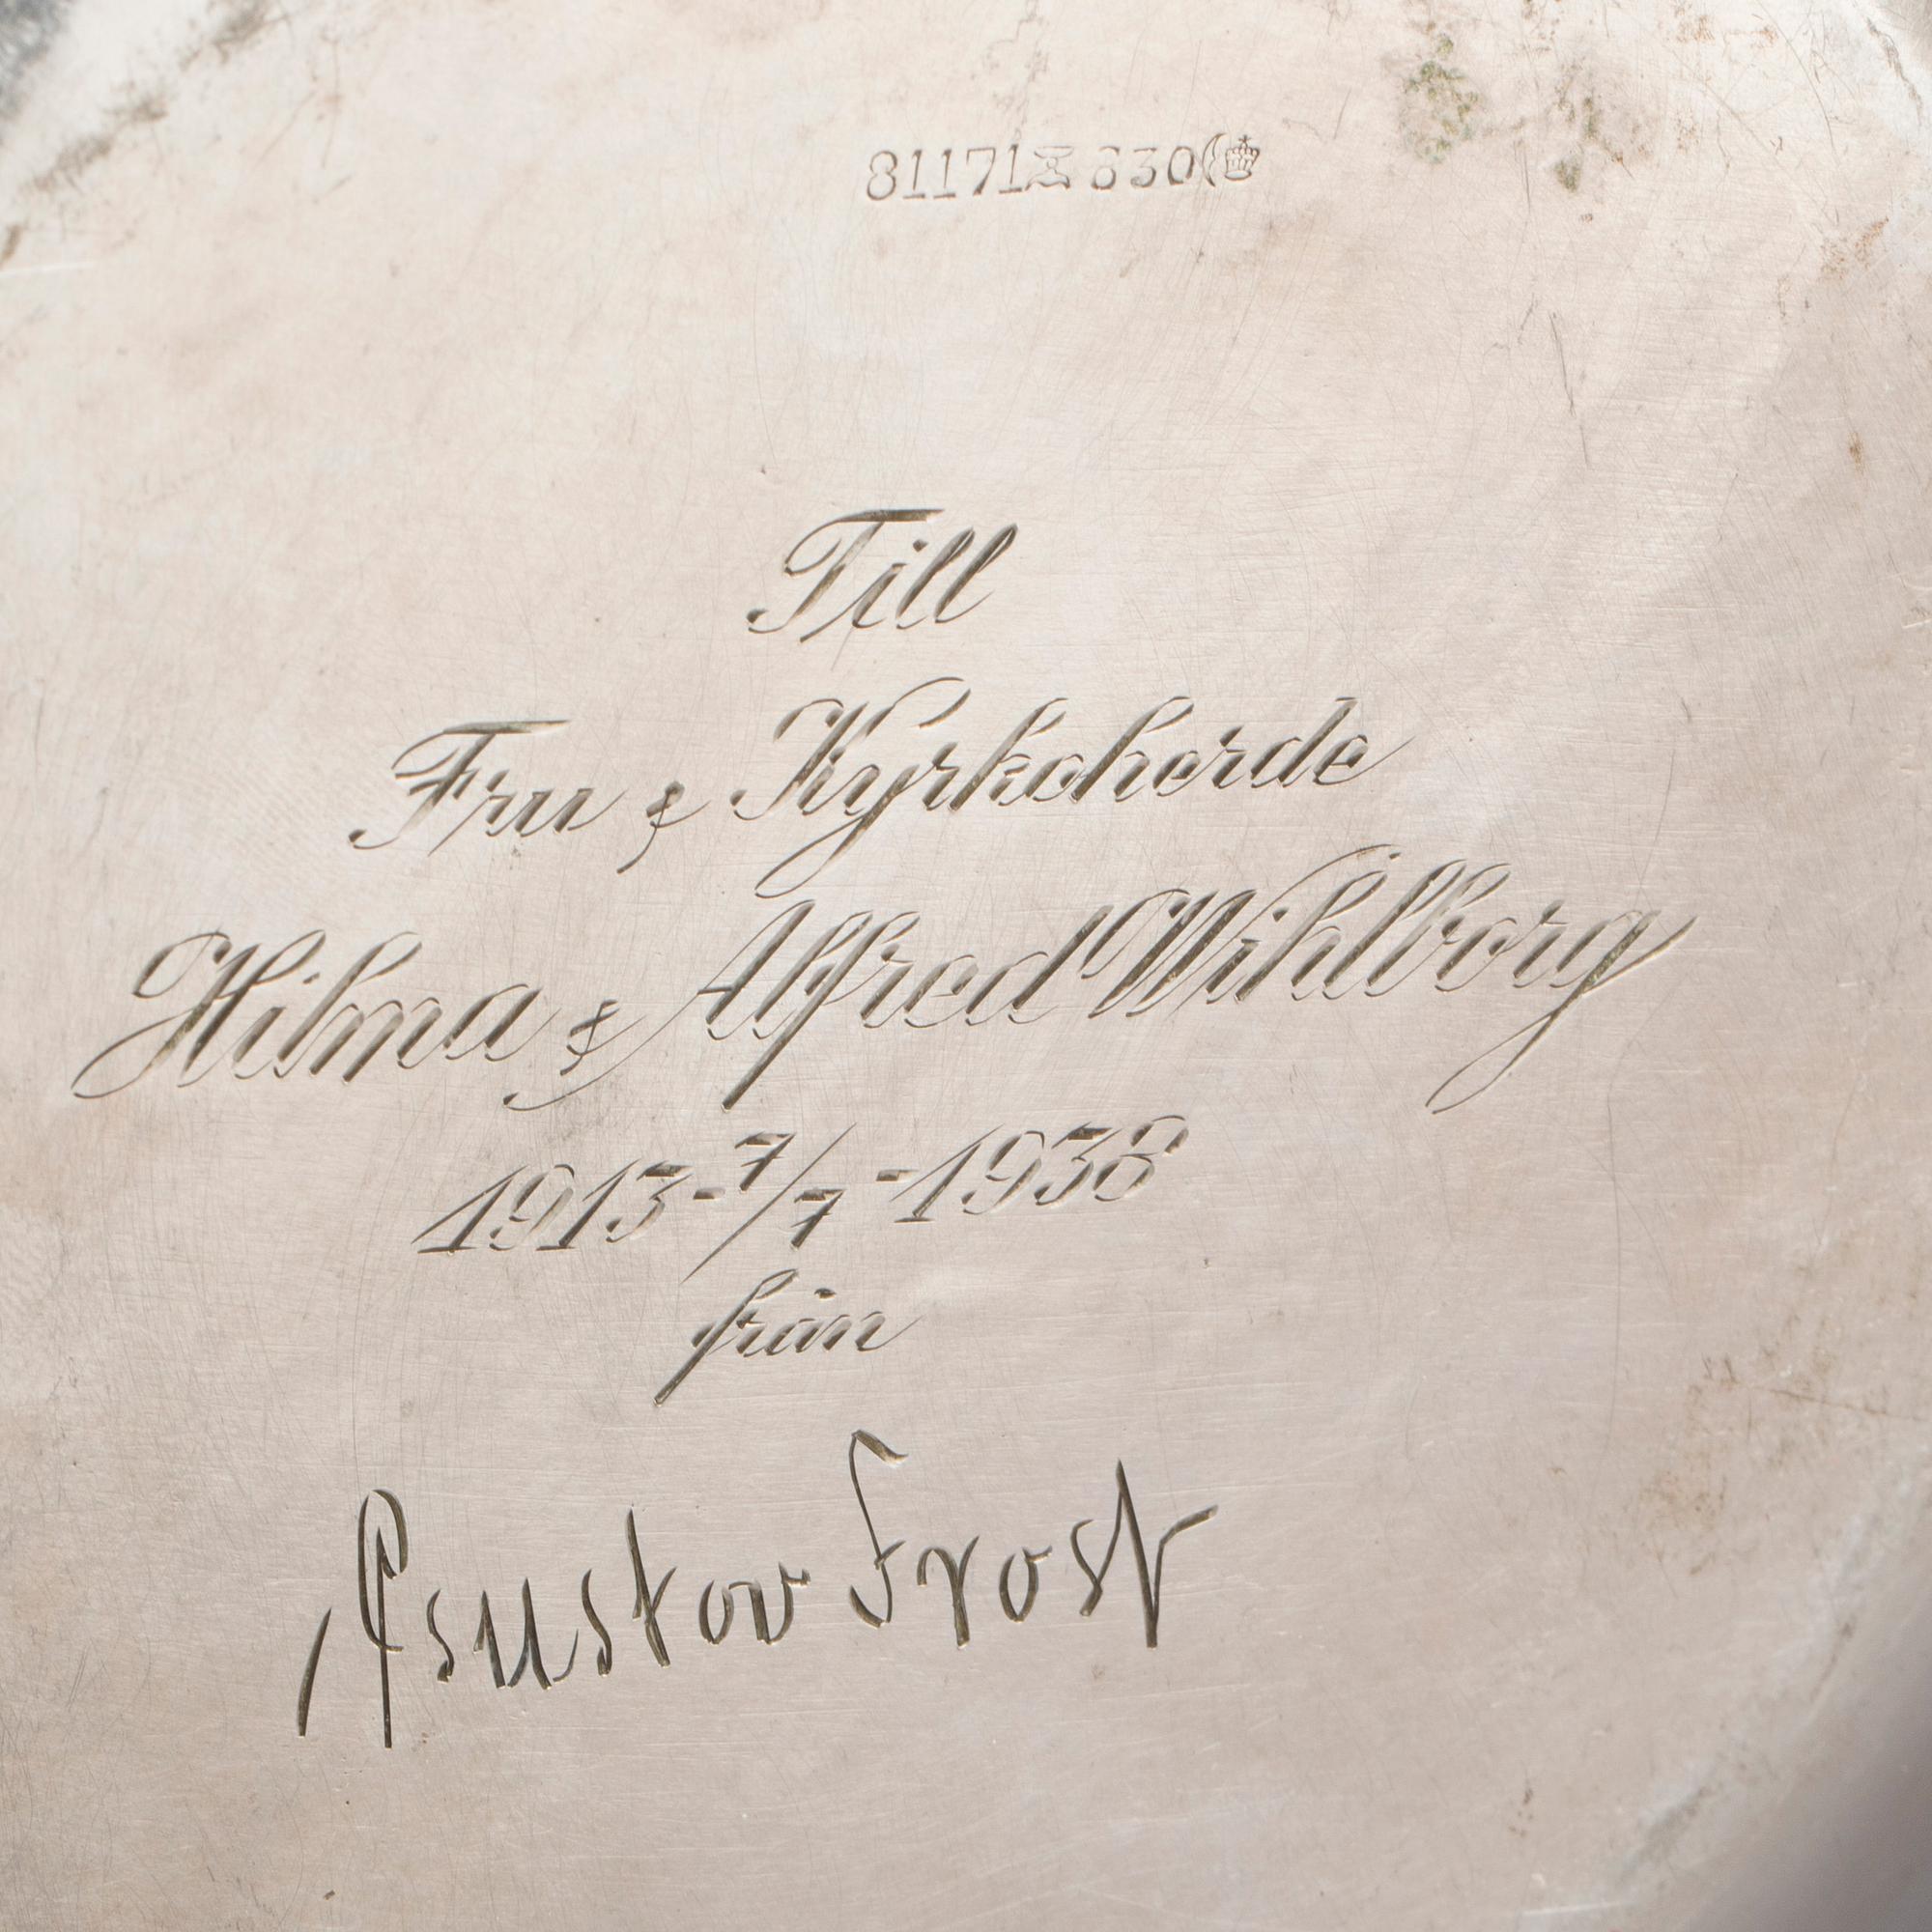 81171 830
Till
Fru & Kyrkoherde
Hilma & Alfred Wihlborg
1913-7/7-1938
från
Gustov Frost